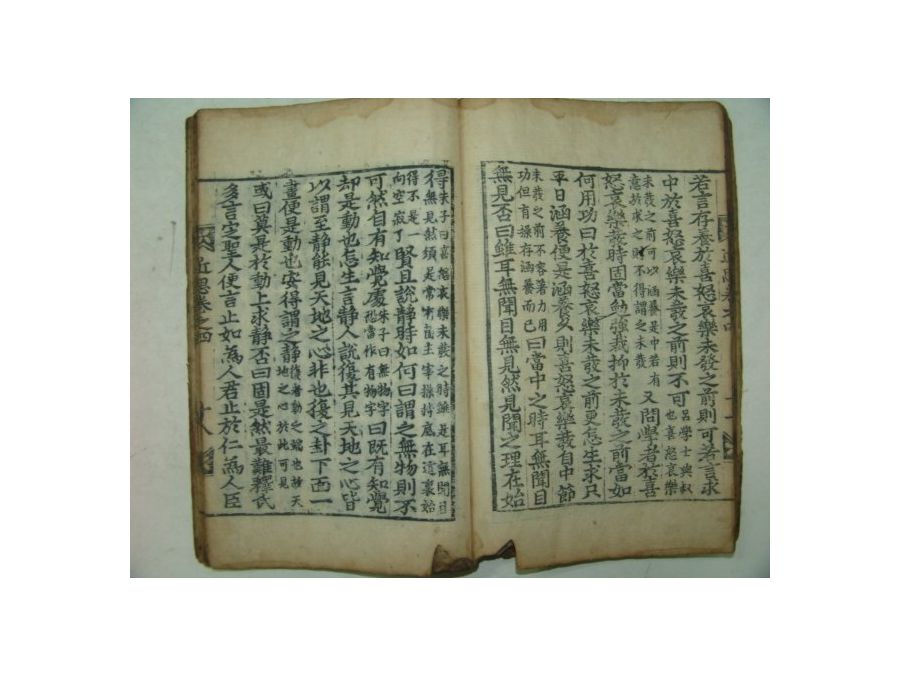 若言存養於喜怒哀樂未發之前則可若言求
中於喜怒哀樂未發之前則不可呂學士與叔也喜怒哀樂
未發之前可以涵養是中若有意於求之則不得謂之未發又問學者於喜
怒哀樂發時固當勉強裁抑於未發之前當如
何用功曰於喜怒哀樂未發之前更怎生求只
平日涵養便是涵養久則喜怒哀樂發自中節
未發之前不容著力用功但有操存涵養而已曰當中之時耳無聞目
無見否曰雖耳無聞目無見然見聞之理在始
得朱子曰喜怒哀樂未發之時雖是耳無聞目無見然須是常有箇主宰操持底在這裏始
得不是一向空寂了賢且說靜時如何曰謂之無物則不
可然自有知覺處朱子曰無物字恐當作有物字曰既有知覺
却是動也怎生言靜人說復其見天地之心皆
以謂至靜能見天地之心非也復之卦下面一
畫便是動也安得謂之靜復者動之端也故天地之心於此可見
或曰莫是於動上求靜否曰固是然最難釋氏
多言定聖人便言止如為人君止於仁為人臣
近思卷之四